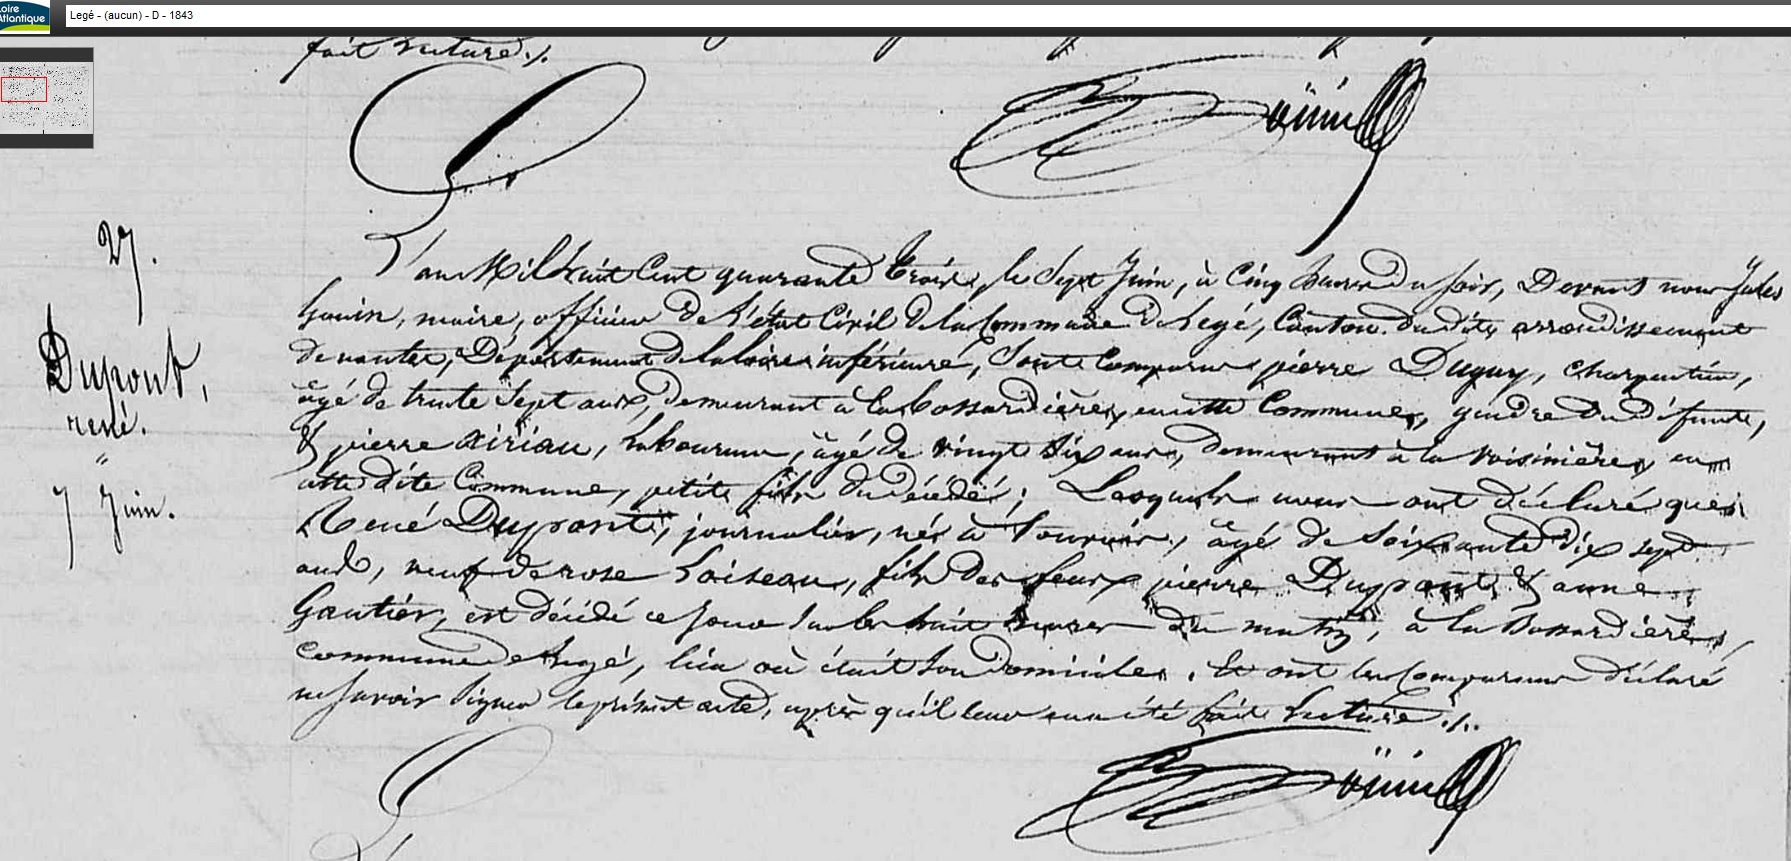 Loire
Atlantique
Legé - (aucun) - D - 1843
fait lecture ./.
27.
Dupont,
rené.
"
7 Juin.
L'an Mil huit Cent quarante Trois, le Sept Juin, à Cinq heures du soir, Devant nous Jules
Gouin, maire, officier de l'état Civil de la Commune de Legé, Canton dudit, arrondissement
de nantes, Département de la loire inférieure, Sont Comparus pierre Duguy, charpentier,
âgé de trente Sept ans, demeurant à la bossardière, en cette Commune, gendre du défunt,
& pierre airiau, laboureur, âgé de vingt Six ans, demeurant à la voisinière, en
cette dite Commune, petit fils du décédé; Lesquels nous ont déclaré que
René Dupont, journalier, né à , âgé de Soixante dix sept
ans, veuf de rose Loiseau, fils des feux pierre Dupont & anne
Gautier, est décédé ce jour sur les huit heures du matin, à la Bossardière,
Commune de Legé, lieu où était son domicile. Et ont les Comparans déclaré
ne savoir Signer le présent acte, après qu'il leur en a été fait lecture ./.